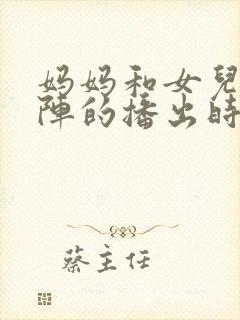 妈妈和女兒
陣的播出時
蔡主任